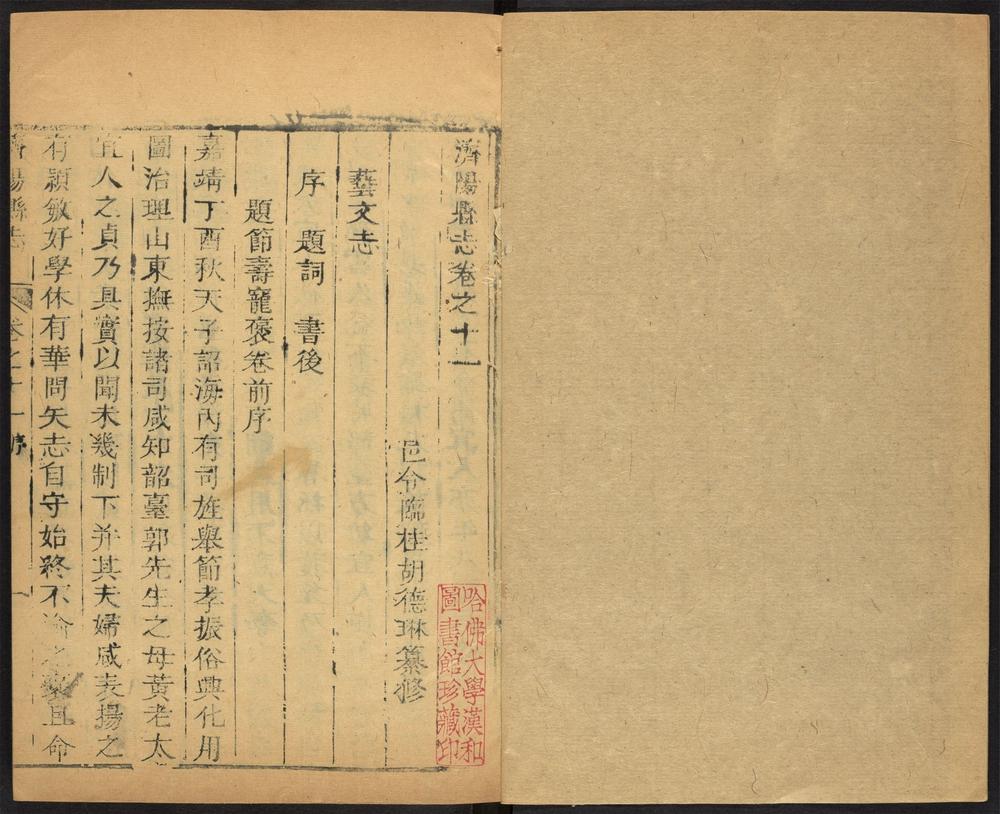 濟陽縣志卷之十一
邑令臨桂胡德琳纂修
藝文志
序 題詞 書後
題節壽寵褒卷前序
嘉靖丁酉秋天子詔海內有司旌舉節孝振俗興化用
圖治理山東撫按諸司咸知韶臺郭先生之母黃老太
宜人之貞乃具實以聞未幾制下并其夫婦咸表揚之
有穎敏好學休有華問矢志自守始終不渝之褒且命
濟陽縣志 卷之十一 序 一
哈佛大學漢和
圖書館珍藏印